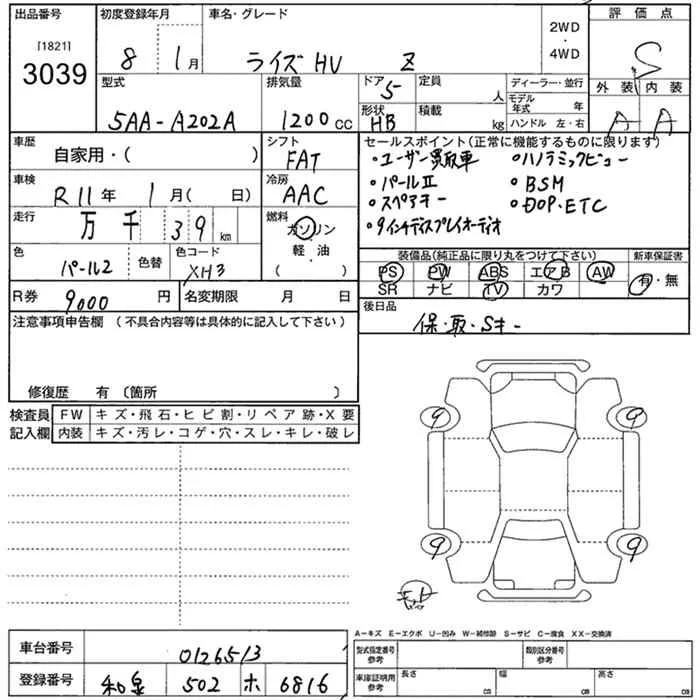 出品番号 初度登録年月 車名・グレード 2WD ・ 4WD 評価点
[1821]
3039 8 1月 ライズHV Z S
型式 排気量 ドア 5 定員 人 ディーラー・並行 外装 内装
モデル年式 年
5AA-A202A 1200cc 形状 HB 積載 kg ハンドル 左・右 A A
車歴 自家用・( ) シフト FAT セールスポイント(正常に機能するものに限ります)
・ユーザー買取車 ・パノラミックビュー
車検 R11年 1月( 日) 冷房 AAC ・パールⅡ ・BSM
・スペアキー ・DOP・ETC
走行 万 千 39 km 燃料 ガソリン ・9インチディスプレイオーディオ
軽・油
( )
色 パール2 色替 色コード XH3 装備品(純正品に限り丸をつけて下さい) 新車保証書
PS PW ABS エアB AW 有・無
SR ナビ TV カワ
R券 9000円 名変期限 月 日 後日品
保・取・Sキー
注意事項申告欄 (不具合内容等は具体的に記入して下さい)
修復歴 有 〔箇所 〕
検査員 FW キズ・飛石・ヒビ割・リペア跡・X要
記入欄 内装 キズ・汚レ・コゲ・穴・スレ・キレ・破レ
9 9
9 9
A-キズ E-エクボ U-凹み W-補修跡 S-サビ C-腐食 XX-交換済
車台番号 0126513 型式指定番号 参考 類別区分番号 参考
登録番号 和泉 502 ホ 6816 車庫証明用 参考 長さ cm 幅 cm 高さ cm